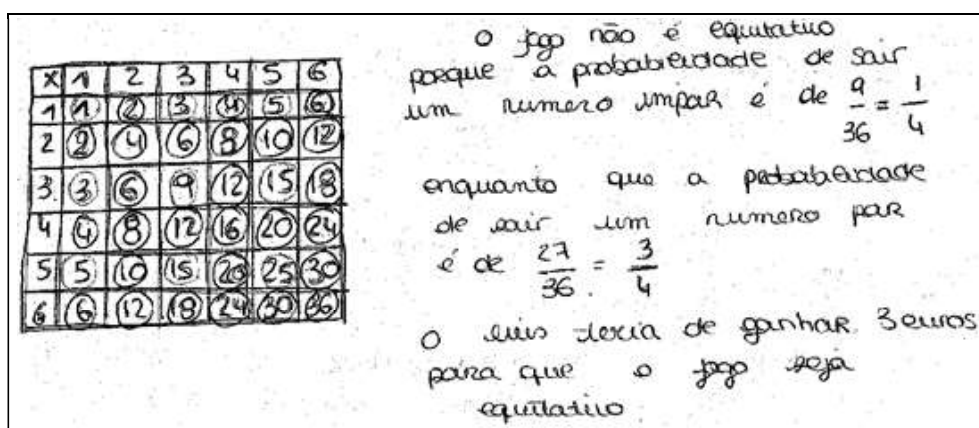 x 1 2 3 4 5 6
1 1 2 3 4 5 6
2 2 4 6 8 10 12
3 3 6 9 12 15 18
4 4 8 12 16 20 24
5 5 10 15 20 25 30
6 6 12 18 24 30 36
O jogo não é equitativo
porque a probabilidade de sair
um numero impar é de 9/36 = 1/4
enquanto que a probabilidade
de sair um numero par
é de 27/36 = 3/4
O luis teria de ganhar 3 euros
para que o jogo seja
equitativo